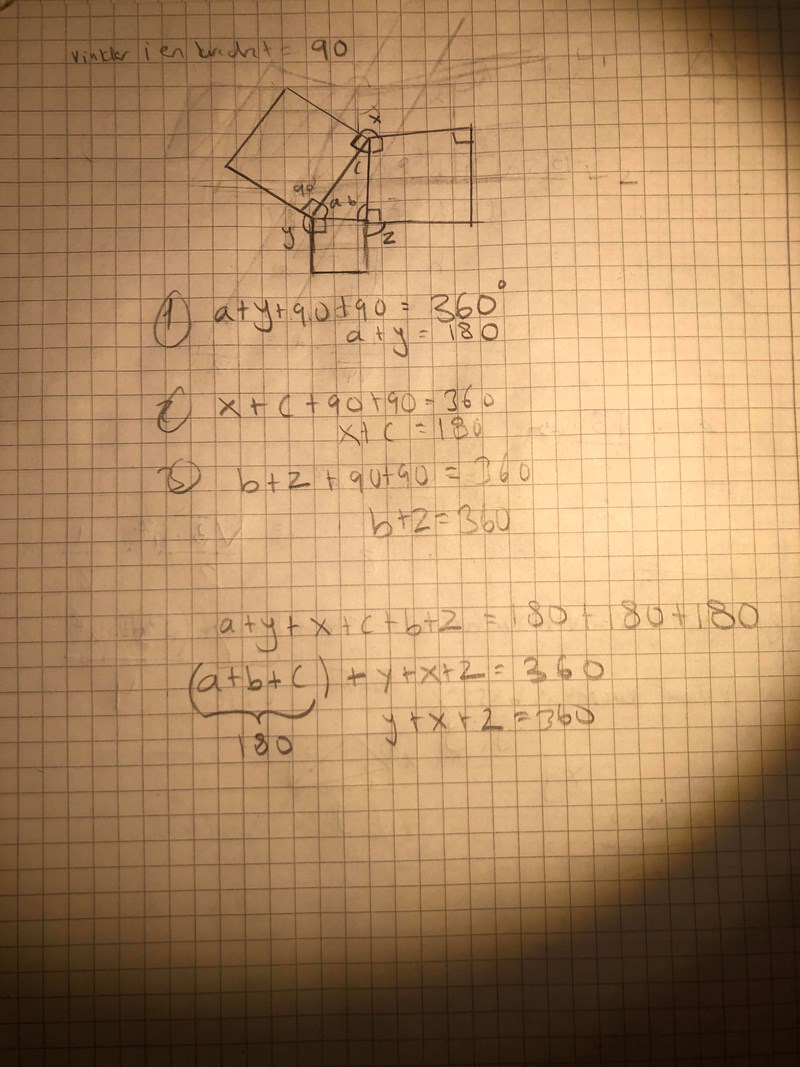 vinklar i en kvadrat = 90
x
c
90
a b
y
z
① a+y+90+90 = 360°
a+y = 180
② x+c+90+90=360
x+c =180
③ b+z+90+90=360
b+z=360
a+y+x+c+b+z =180+180+180
(a+b+c)+y+x+z=360
180 y+x+z=360